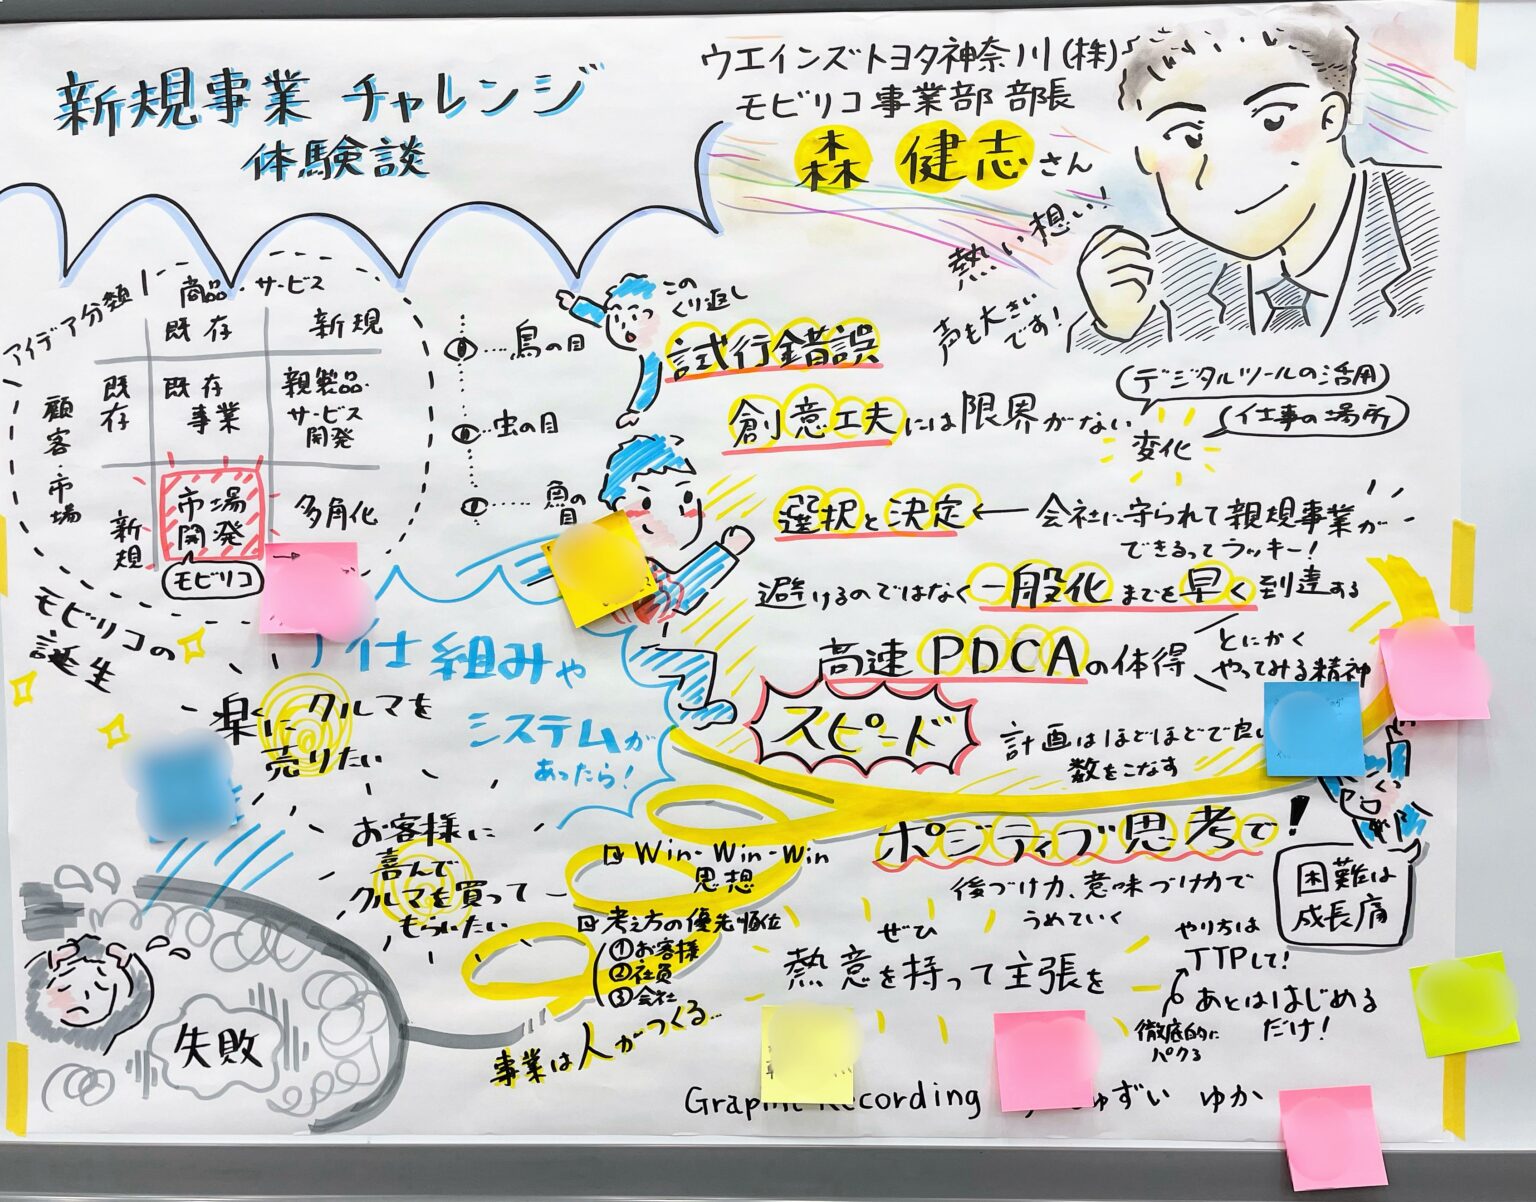 新規事業チャレンジ
体験談
ウエインズトヨタ神奈川(株)
モビリコ事業部 部長
森 健志さん
熱い想い!
声も大きい
です!
アイデア分類
商品・サービス
既存
新規
顧客・市場
既存
既存
事業
親製品・
サービス
開発
新規
市場
開発
多角化
モビリコ
モビリコの
誕生
鳥の目
虫の目
魚の
目
この
くり返し
試行錯誤
創意工夫には限界がない
変化
デジタルツールの活用
仕事の場所
選択と決定
会社に守られて親規事業が
できるってラッキー!
避けるのではなく一般化までを早く到達する
高速PDCAの体得
とにかく
やってみる精神
スピード
計画はほどほどで良い
数をこなす
仕組みや
システムが
あったら!
楽に
クルマを
売りたい
お客様に
喜んで
クルマを買って
もらいたい
失敗
Win-Win-Win
思想
考え方の優先順位
①お客様
②社員
③会社
事業は人がつくる…
ポジティブ思考で!
後づけ力、意味づけ力で
うめていく
困難は
成長痛
ぜひ
熱意を持って主張を
やり方は
TTPして!
あとははじめる
だけ!
徹底的に
パクる
Graphic Recording
ずい ゆか